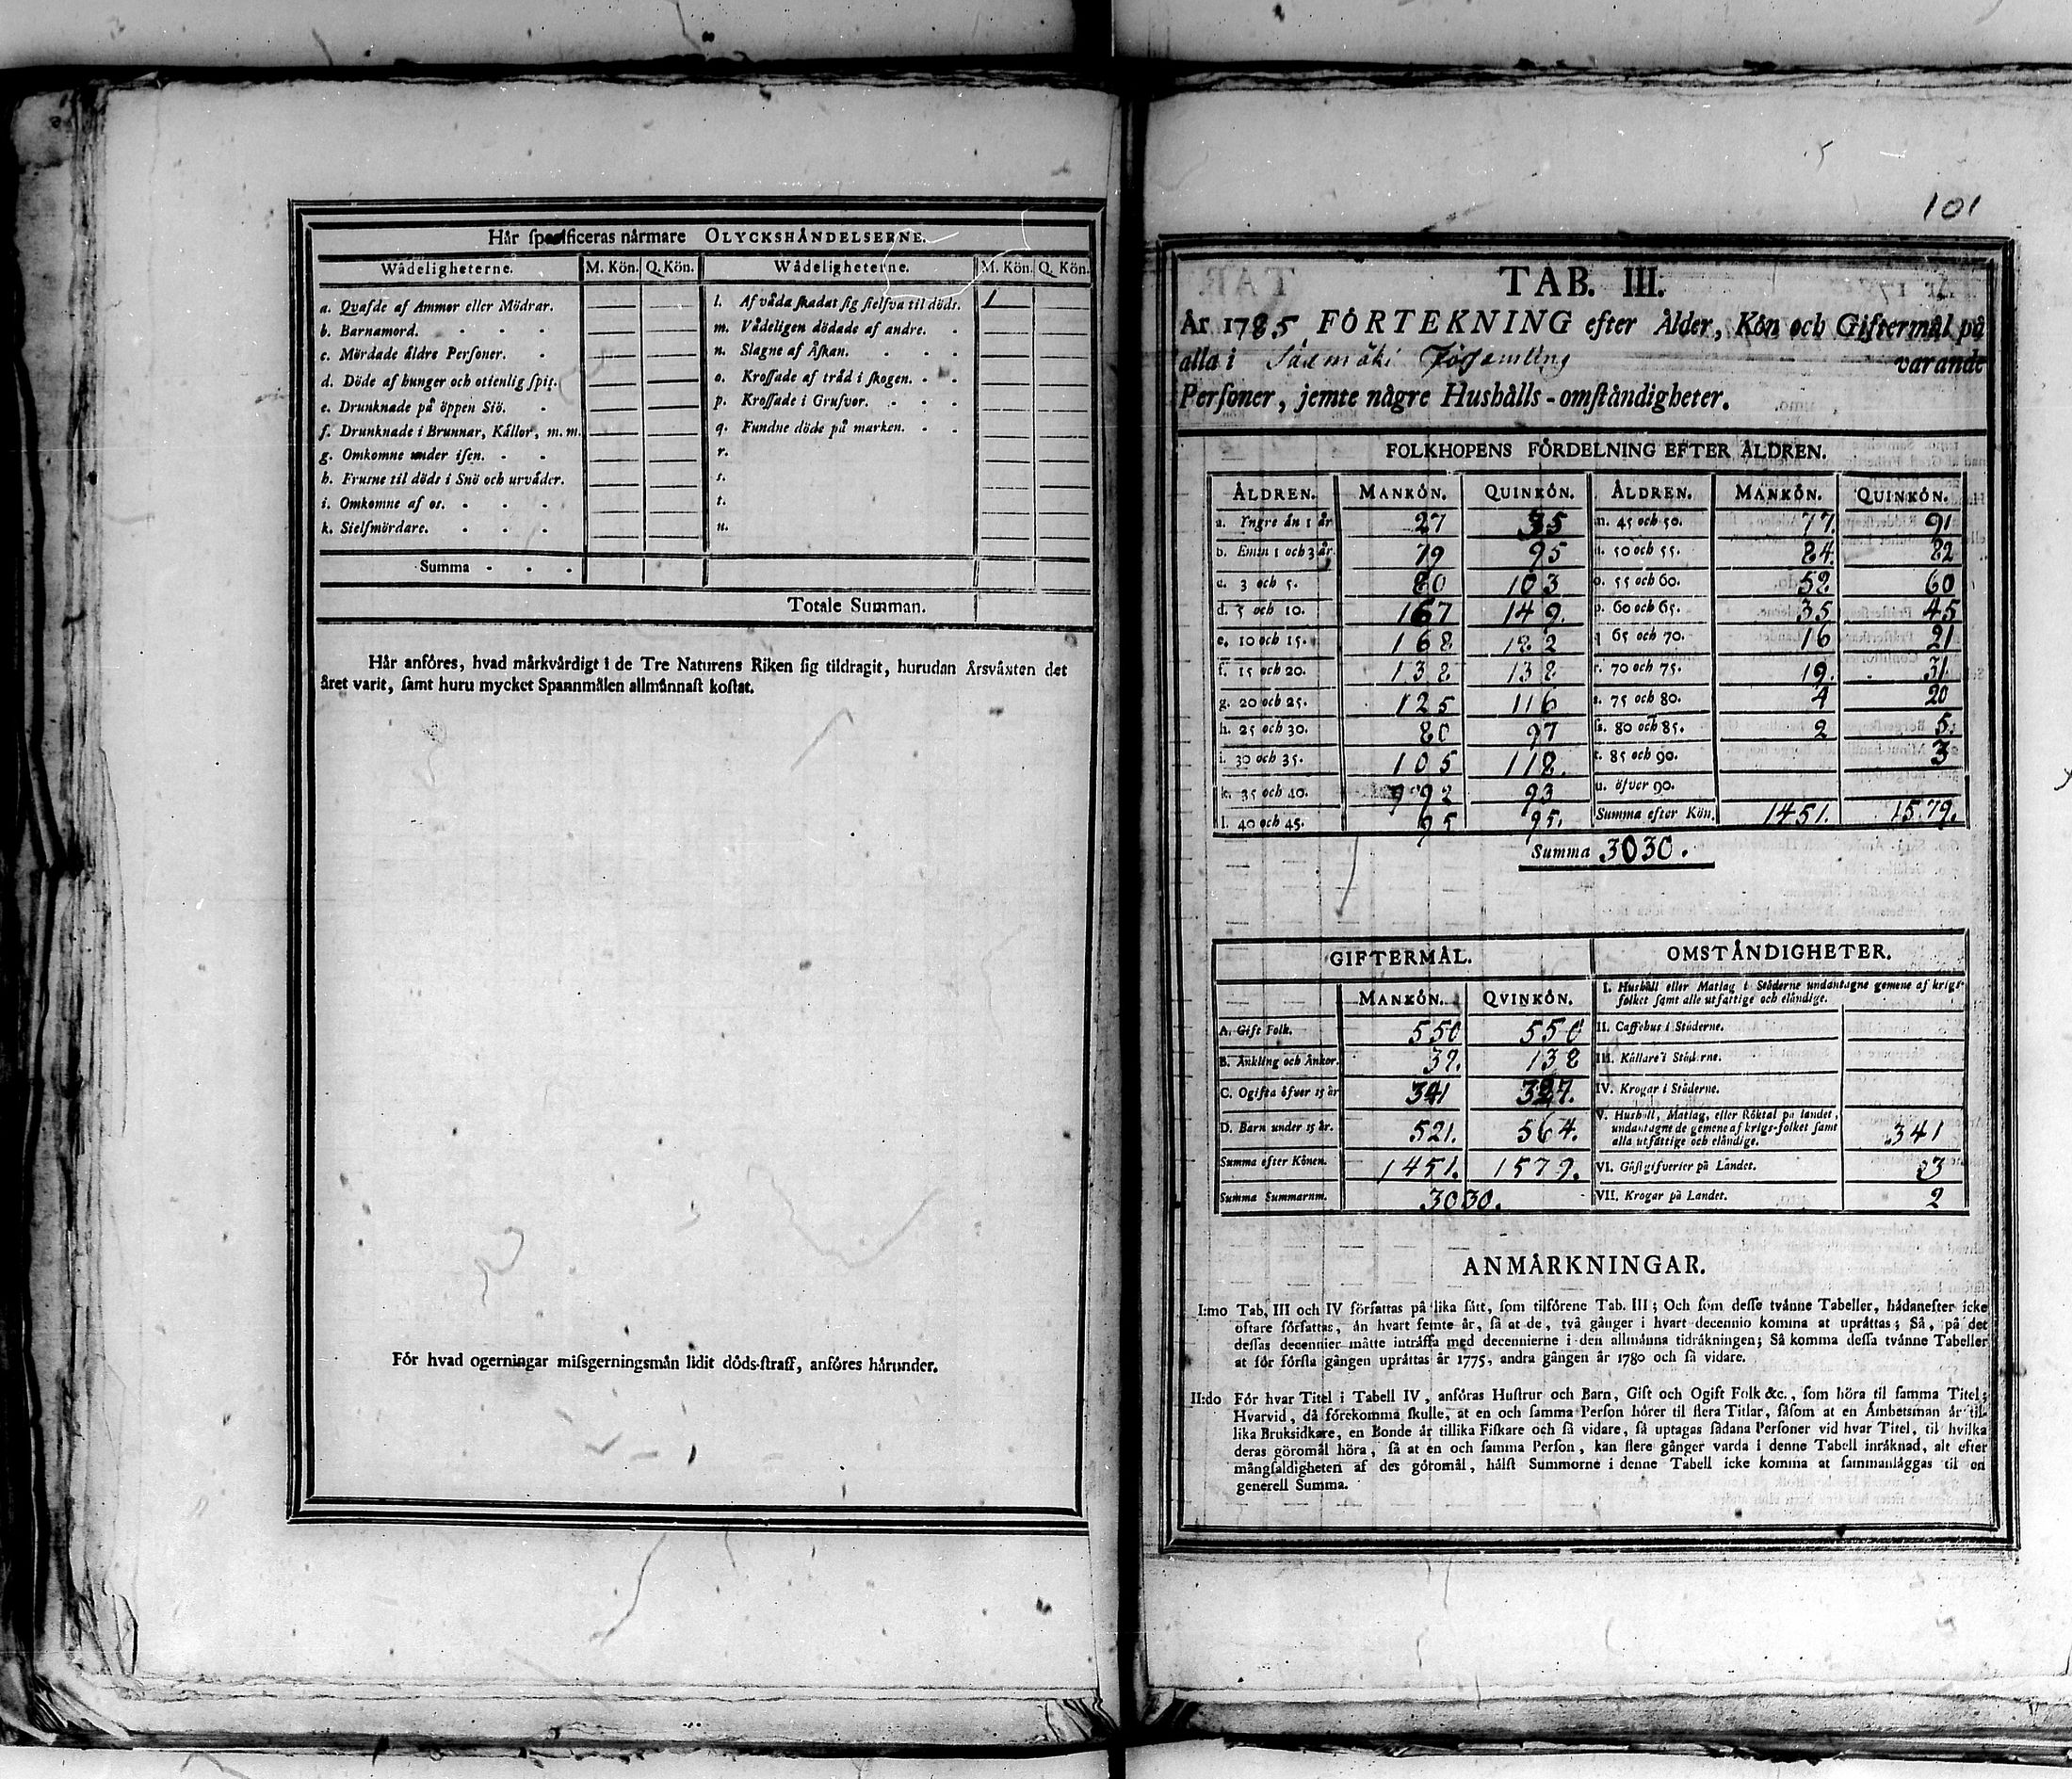 Hår specificeras nårmare OLYCKSHÅNDELSERNE.
Wådeligheterne. M. Kön. Q. Kön. Wådeligheterne. M. Kön. Q. Kön.
a. Qvafde af Ammor eller Mödrar. l. Af våda skadat sig sielfva til döds. 1
b. Barnamord. m. Vådeligen dödade af andre.
c. Mördade åldre Personer. n. Slagne af Åskan.
d. Döde af hunger och otienlig spis. o. Krossade af tråd i skogen.
e. Drunknade på öppen Siö. p. Krossade i Grufvor.
f. Drunknade i Brunnar, Kållor, m. m. q. Fundne döde på marken.
g. Omkomne under isen. r.
h. Frusne til döds i Snö och urvåder. s.
i. Omkomne af os. t.
k. Sielfmördare. u.
Summa
Totale Summan.
Hår anföres, hvad mårkvårdigt i de Tre Naturens Riken sig tildragit, hurudan Årsvåxten det
året varit, samt huru mycket Spannmålen allmånnast kostat.
För hvad ogerningar missgerningsmån lidit döds-straff, anföres hårunder.
101
TAB. III.
År 1785 FÖRTEKNING efter Ålder, Kön och Giftermål på
alla i Församling varande
Personer, jemte någre Hushålls-omståndigheter.
FOLKHOPENS FÖRDELNING EFTER ÅLDREN.
ÅLDREN. MANKÖN. QUINKÖN. ÅLDREN. MANKÖN. QUINKÖN.
a. Yngre ån 1 år 27 35 m. 45 och 50. 77. 91
b. Emin 1 och 3 år 79 95 n. 50 och 55. 84. 82
c. 3 och 5. 80 103 o. 55 och 60. 52 60
d. 5 och 10. 167 149. p. 60 och 65. 35 45
e. 10 och 15. 168 182 q. 65 och 70. 16 21
f. 15 och 20. 138 138 r. 70 och 75. 19. 31.
g. 20 och 25. 125 116 s. 75 och 80. 4 20
h. 25 och 30. 80 97 ss. 80 och 85. 2 5.
i. 30 och 35. 105 118. t. 85 och 90. 3
k. 35 och 40. 92 93 u. öfver 90.
l. 40 och 45. 95 95. Summa efter Kön. 1451. 1579.
Summa 3030.
GIFTERMÅL. OMSTÅNDIGHETER.
MANKÖN. QVINKÖN. I. Hushåll eller Matlag i Ståderne undantagne gemene af krigs-
folket samt alle utfattige och elåndige.
A. Gift Folk. 550 550 II. Caffehus i Ståderne.
B. Ånkling och Ånkor. 39. 138 III. Kållare i Ståderne.
C. Ogifta öfver 15 år 341 327. IV. Krogar i Ståderne.
D. Barn under 15 år. 521. 564. V. Hushåll, Matlag, eller Röktal på landet,
undantagne de gemene af krigs-folket samt
alla utfattige och elåndige. 341
Summa efter Könen. 1451. 1579. VI. Gåstgifverier på Landet. 3
Summa Summarum. 3030. VII. Krogar på Landet. 2
ANMÅRKNINGAR.
I:mo Tab. III och IV författas på lika sått, som tilförene Tab. III; Och som desse tvånne Tabeller, hådanefter icke
oftare författas, ån hvart femte år, så at de, två gånger i hvart decennio komma at upråttas; Så, på det
dessas decennier måtte intråffa med decennierne i den allmånna tidråkningen; Så komma dessa tvånne Tabeller
at för första gången upråttas år 1775, andra gången år 1780 och så vidare.
II:do För hvar Titel i Tabell IV, anföras Hustrur och Barn, Gift och Ogift Folk &c., som höra til samma Titel;
Hvarvid, då förekomma skulle, at en och samma Person hörer til flera Titlar, såsom at en Åmbetsman år til-
lika Bruksidkare, en Bonde år tillika Fiskare och så vidare, så uptagas sådana Personer vid hvar Titel, til hvilka
deras göromål höra, så at en och samma Person, kan flere gånger varda i denne Tabell inråknad, alt efter
mångfaldigheten af des göromål, hålst Summorne i denne Tabell icke komma at sammanlåggas til en
generell Summa.